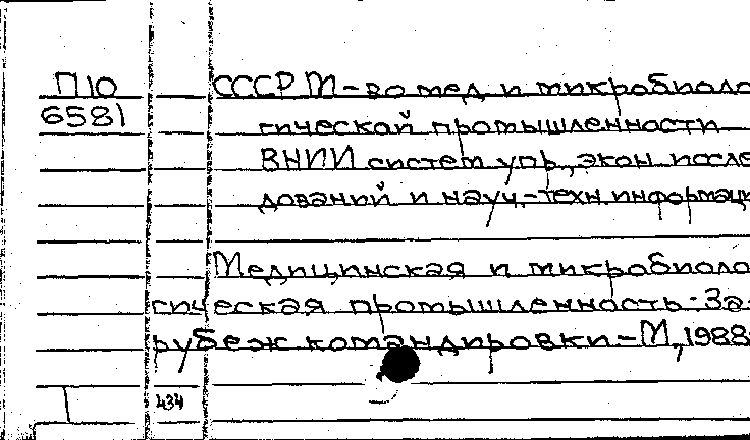 П10
6581
СССР М-во мед и микробиоло
гической промышленности
ВНИИ систем упр., экон иссле
дований и науч.-техн. информаци
Медицинская и микробиоло
гическая промышленность: За
рубеж командировки - М, 1988
434